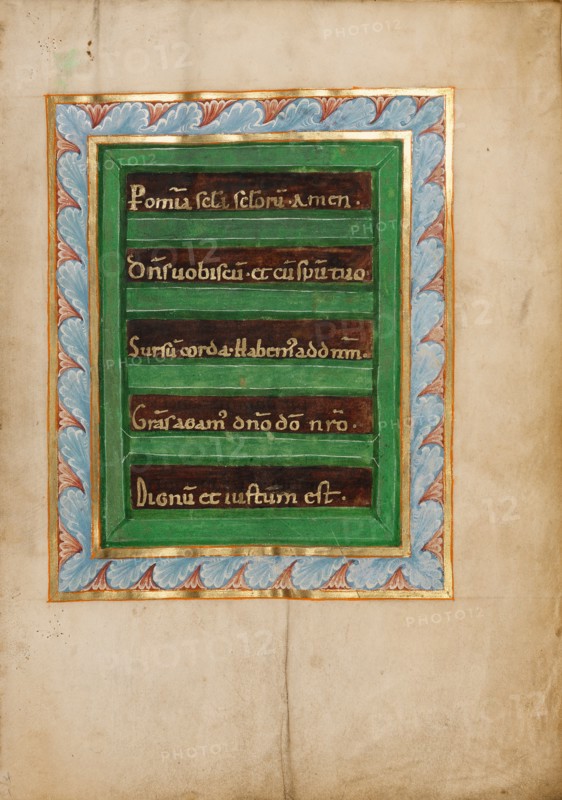 Pom̄ia sc̄la sc̄lorū · Amen ·
Dn̄s uobiscū · et cū sp̄u tuo
Sursū corda · Habem' ad dn̄m ·
Grās agam' dn̄o dō nr̄o ·
Dignū et iustum est ·
PHOTO12